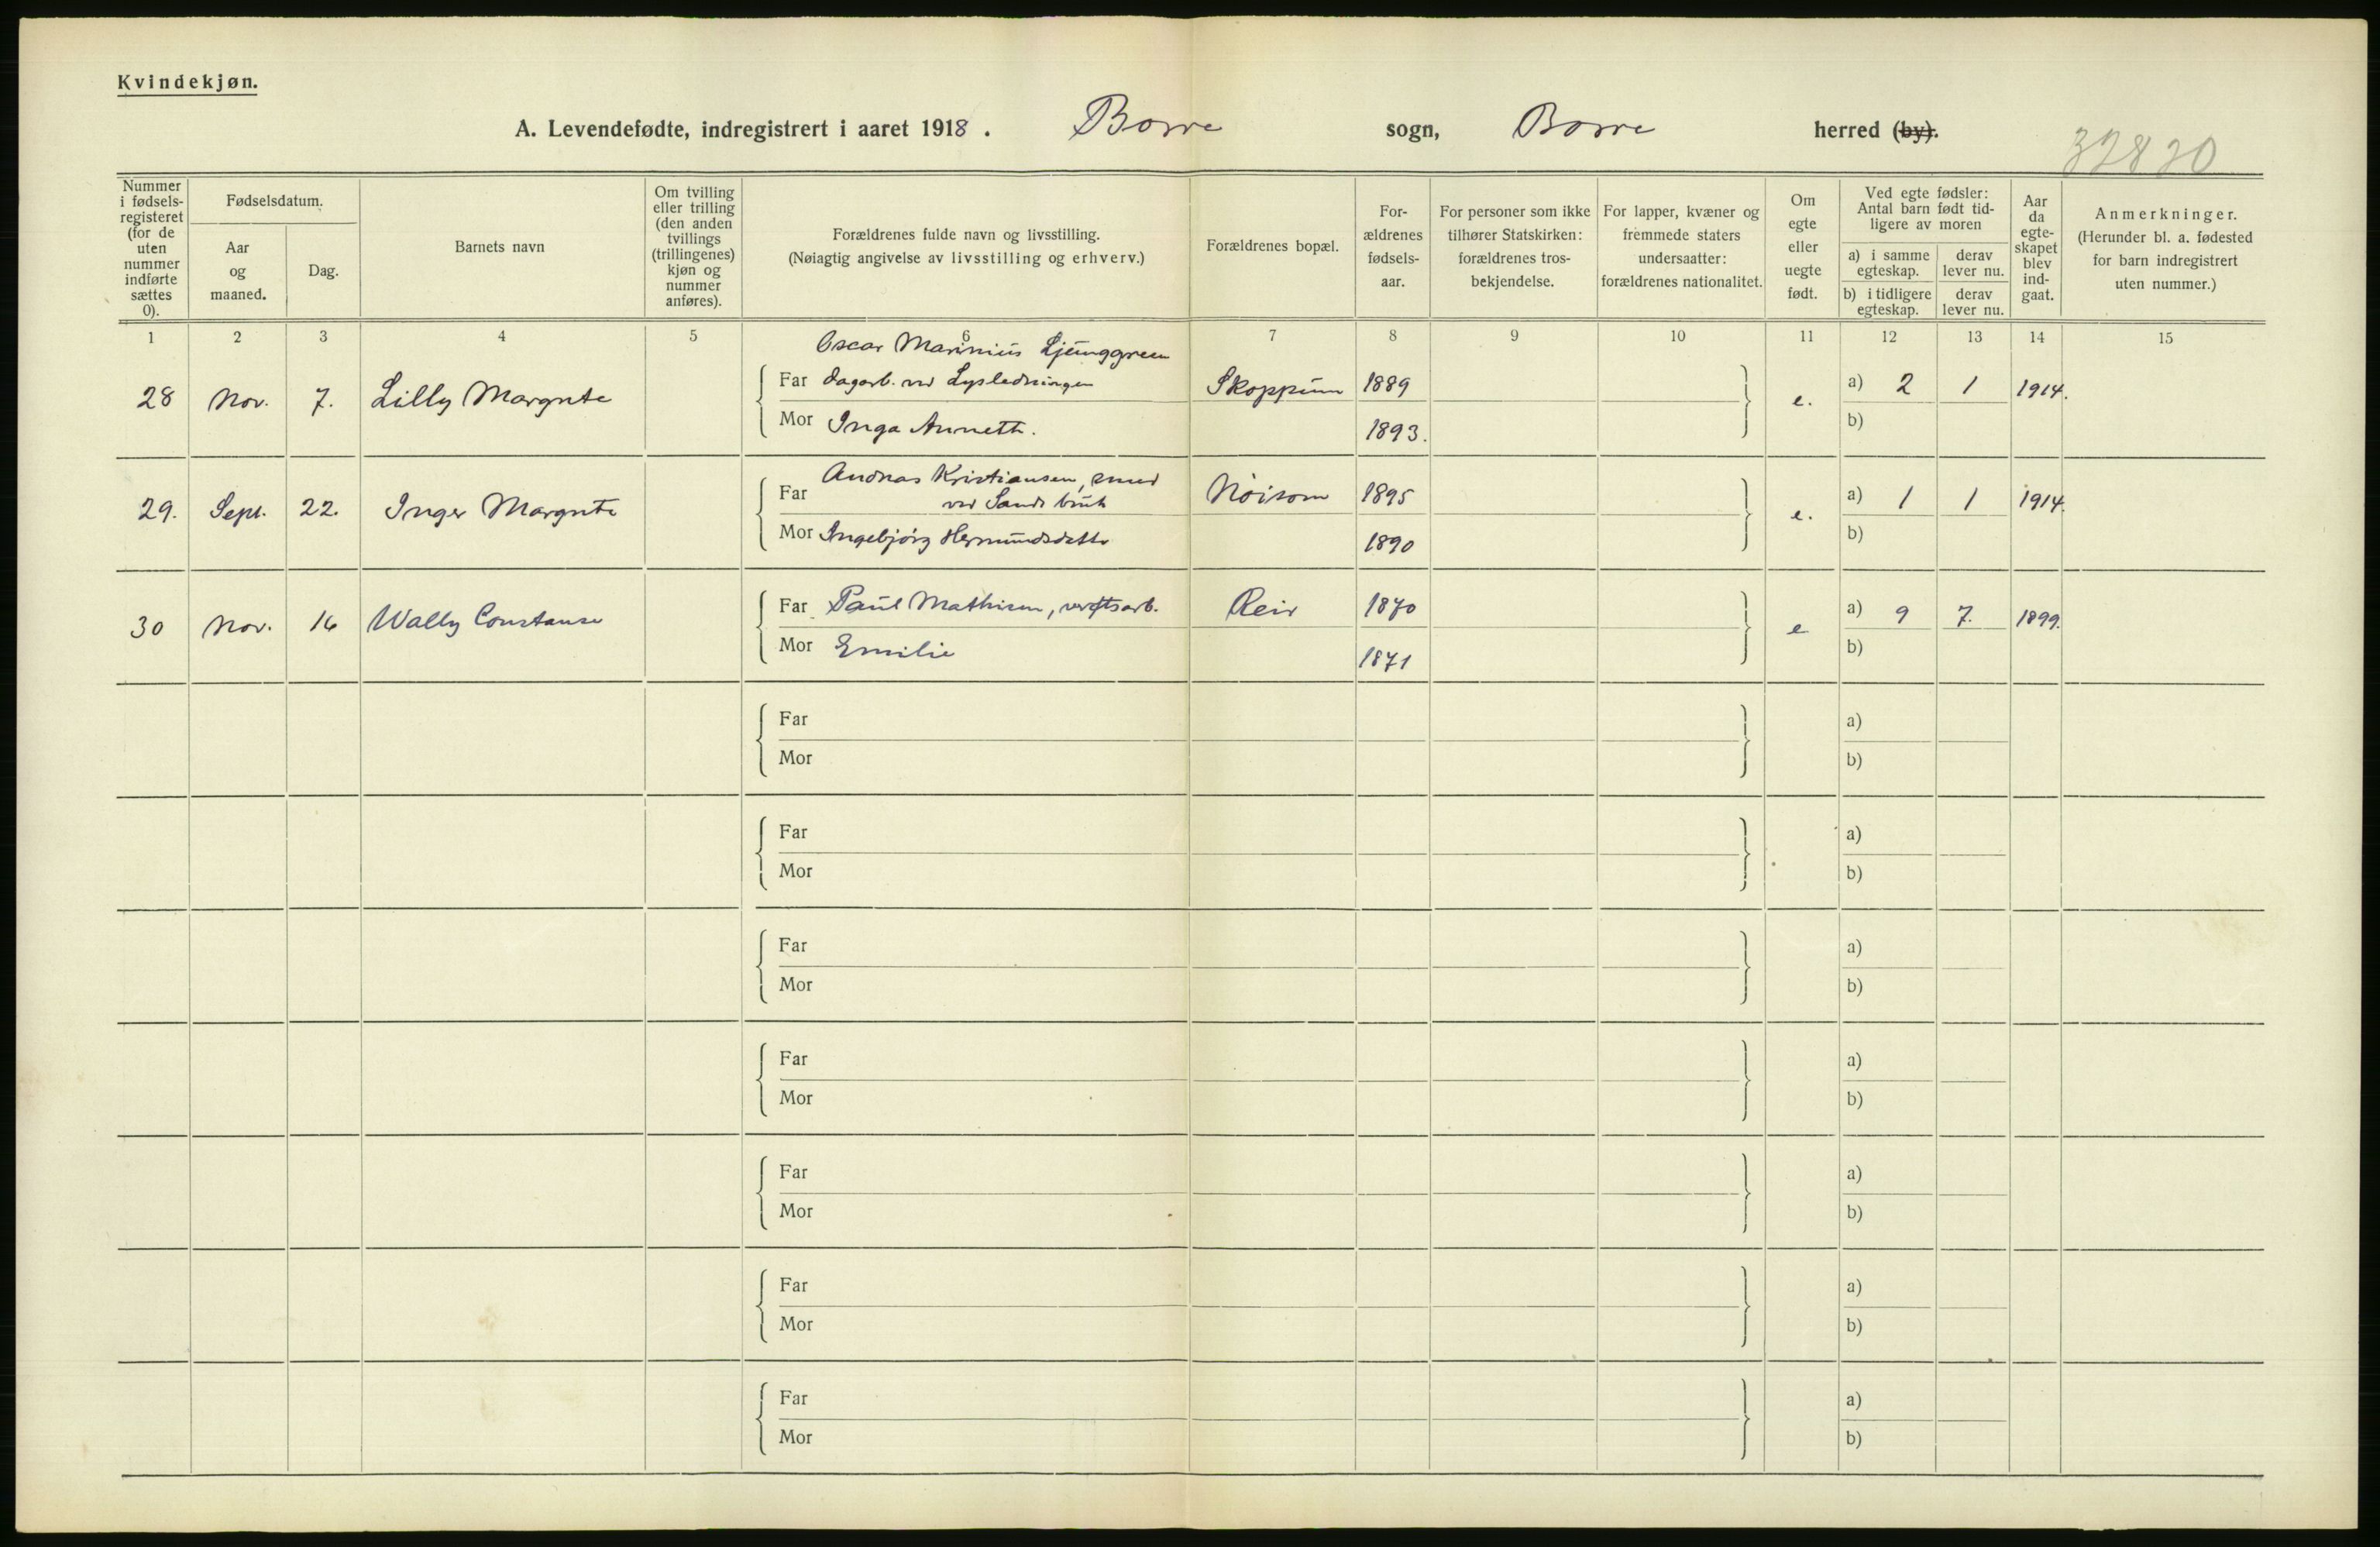 Kvindekjøn.
A. Levendefødte, indregistrert i aaret 1918. Borre sogn, Borre herred (by).
32820
Nummer i fødsels-registeret (for de uten nummer indførte sættes 0).
Fødselsdatum.
Aar og maaned.
Dag.
Barnets navn
Om tvilling eller trilling (den anden tvillings (trillingenes) kjøn og nummer anføres).
Forældrenes fulde navn og livsstilling.
(Nøiagtig angivelse av livsstilling og erhverv.)
Forældrenes bopæl.
For-ældrenes fødsels-aar.
For personer som ikke tilhører Statskirken: forældrenes tros-bekjendelse.
For lapper, kvæner og fremmede staters undersaatter: forældrenes nationalitet.
Om egte eller uegte født.
Ved egte fødsler: Antal barn født tid-ligere av moren
a) i samme egteskap.
derav lever nu.
b) i tidligere egteskap.
derav lever nu.
Aar da egte-skapet blev ind-gaat.
Anmerkninger.
(Herunder bl. a. fødested for barn indregistrert uten nummer.)
1 2 3 4 5 6 7 8 9 10 11 12 13 14 15
Oscar Marinius Ljunggreen
28 Nov. 7. Lilly Margrete Far dagarb. ved Lysledningen Skoppum 1889 e. a) 2 1 1914.
Mor Inga Anneth. 1893. b)
Andreas Kristiansen, smed
29. Sept. 22. Inger Margrete Far ved Sands bruk Nöisom 1895 e. a) 1 1 1914.
Mor Ingebjörg Hermundsdatter 1890 b)
30 Nov. 16 Wally Constanse Far Paul Mathisen, verftsarb. Reir 1870 e a) 9 7. 1899.
Mor Emilie 1871 b)
Far a)
Mor b)
Far a)
Mor b)
Far a)
Mor b)
Far a)
Mor b)
Far a)
Mor b)
Far a)
Mor b)
Far a)
Mor b)